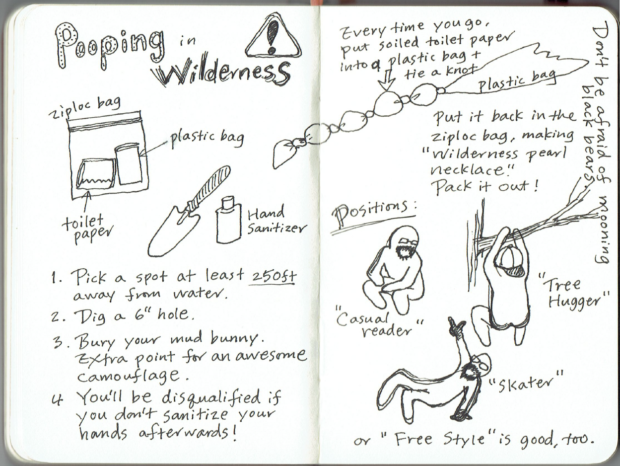 Pooping in
Wilderness
ziploc bag
plastic bag
toilet
paper
Hand
Sanitizer
1. Pick a spot at least 250ft
away from water.
2. Dig a 6" hole.
3. Bury your mud bunny.
Extra point for an awesome
camouflage.
4 You'll be disqualified if
you don't sanitize your
hands afterwards!
Every time you go,
put soiled toilet paper
into a plastic bag +
tie a knot
plastic bag
Put it back in the
ziploc bag, making
"Wilderness pearl
necklace."
Pack it out!
Don't be afraid of mooning
black bears.
Positions:
"Casual
reader"
"Tree
Hugger"
"Skater"
or "Free Style" is good, too.